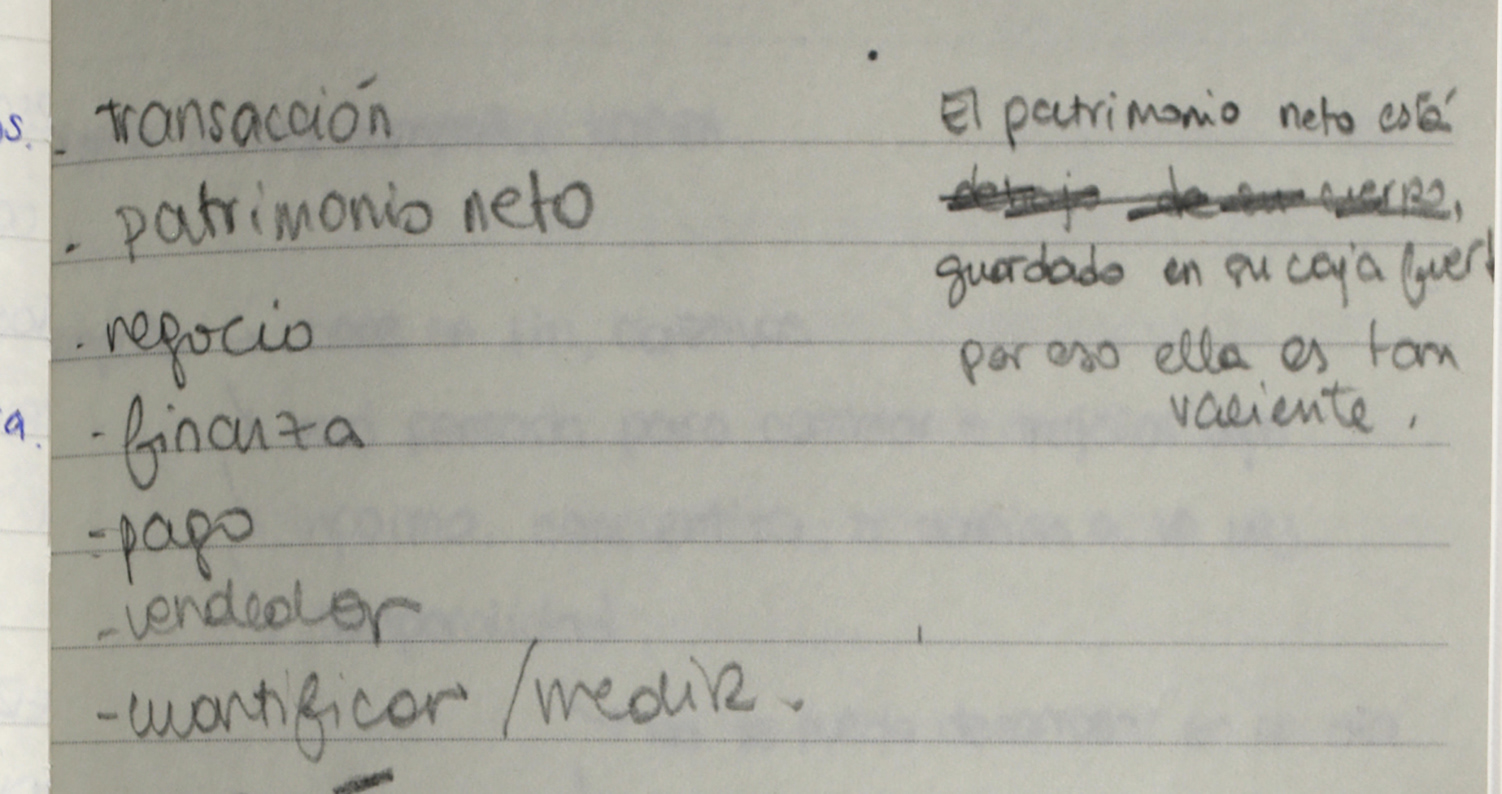 - transacción
- patrimonio neto
. negocio
- finanza
- pago
- vendedor
- cuantificar / medir.
El patrimonio neto está
debajo de su cuerpo,
guardado en su caja fuert
por eso ella es tan
valiente.